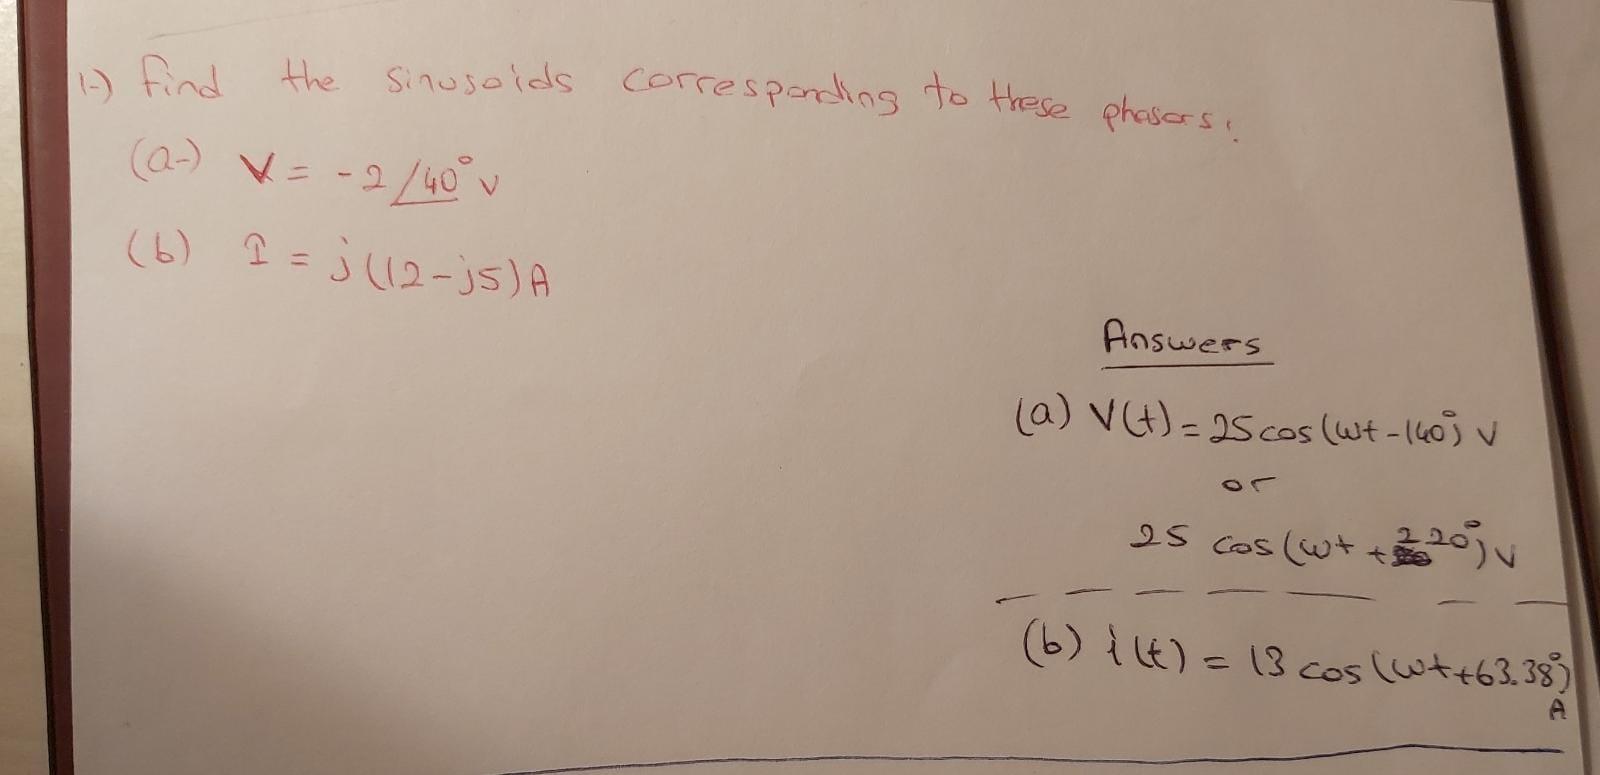 1-) Find the sinusoids corresponding to these phasors:
(a-) V = -2/40° v
(b) I = j(12-j5)A
Answers
(a) V(t) = 25 cos(wt-140°) V
or
25 cos(wt + 220°) v
(b) i(t) = 13 cos(wt+63.38°)
A